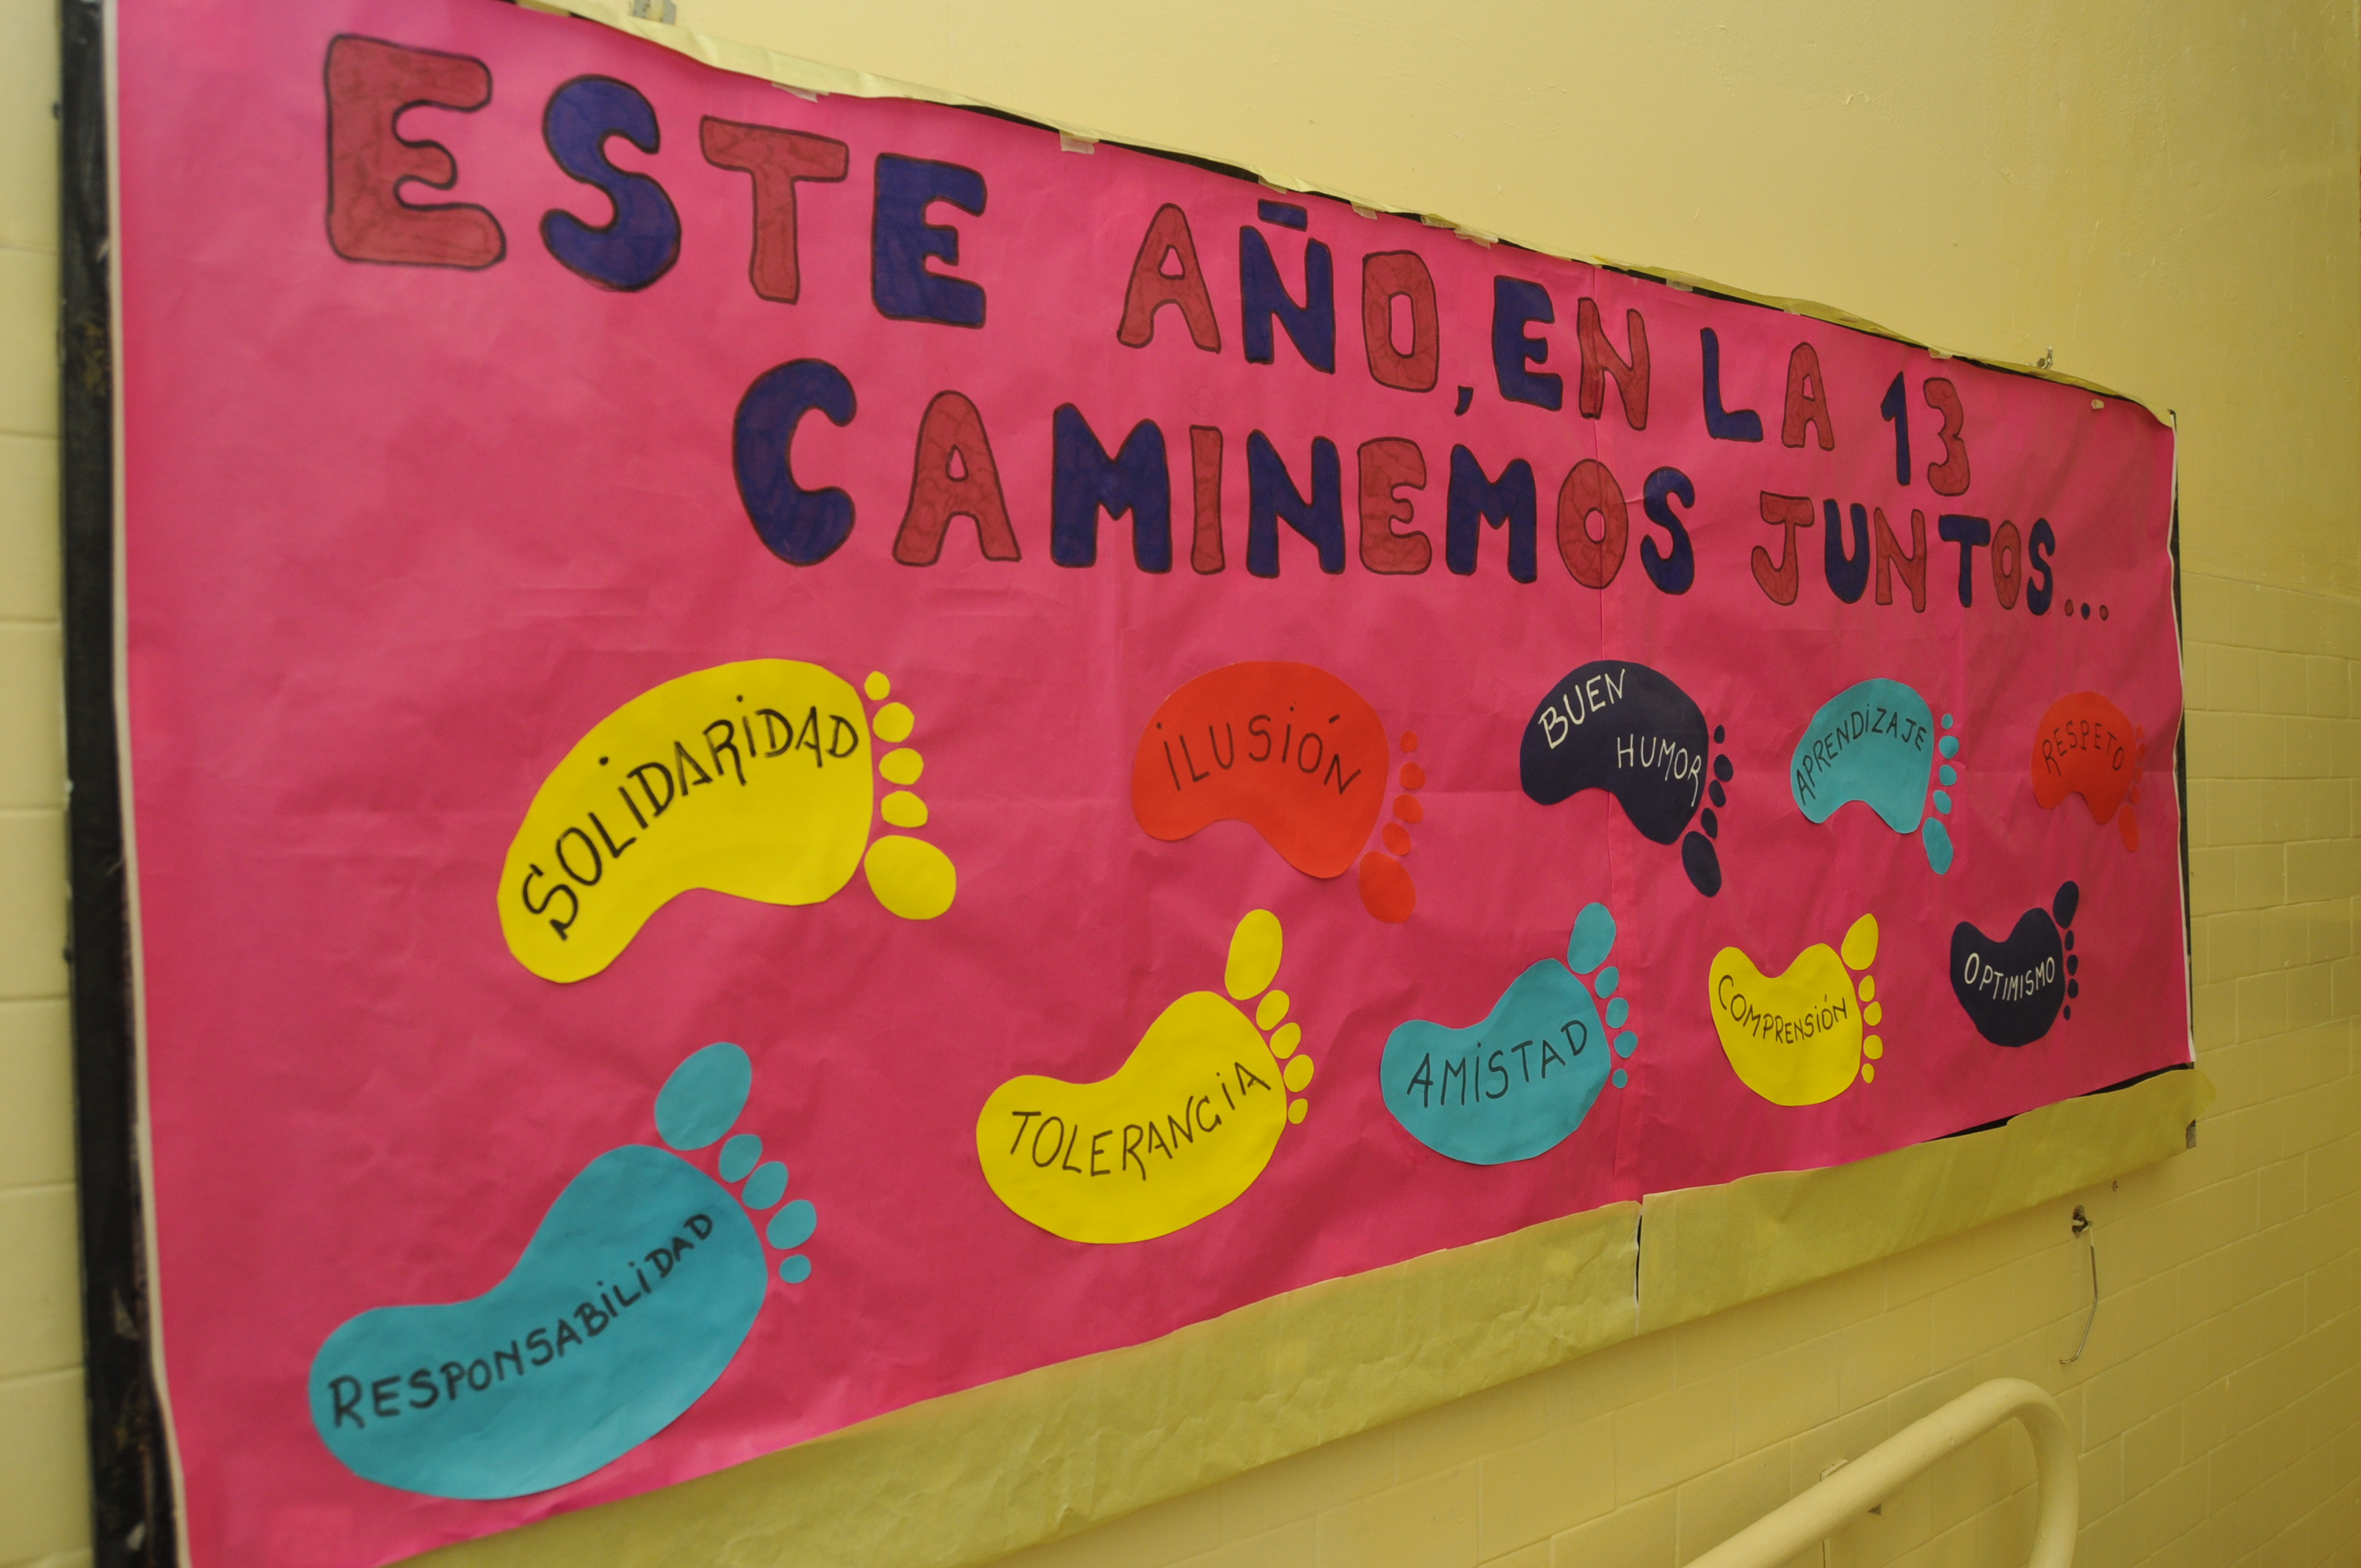 ESTE AÑO, EN LA 13
CAMINEMOS JUNTOS...
SOLIDARIDAD
ILUSIÓN
BUEN
HUMOR
APRENDIZAJE
RESPETO
RESPONSABILIDAD
TOLERANCIA
AMISTAD
COMPRENSIÓN
OPTIMISMO